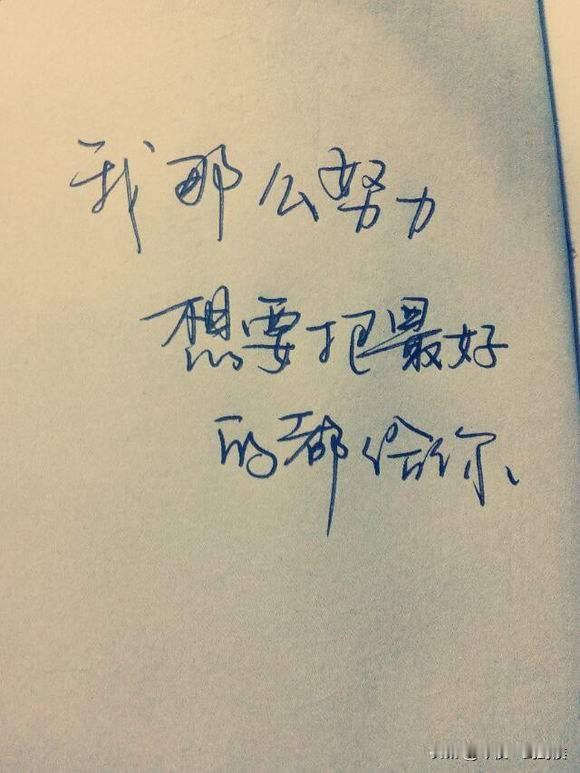 我那么努力
想要把最好
的都给你、